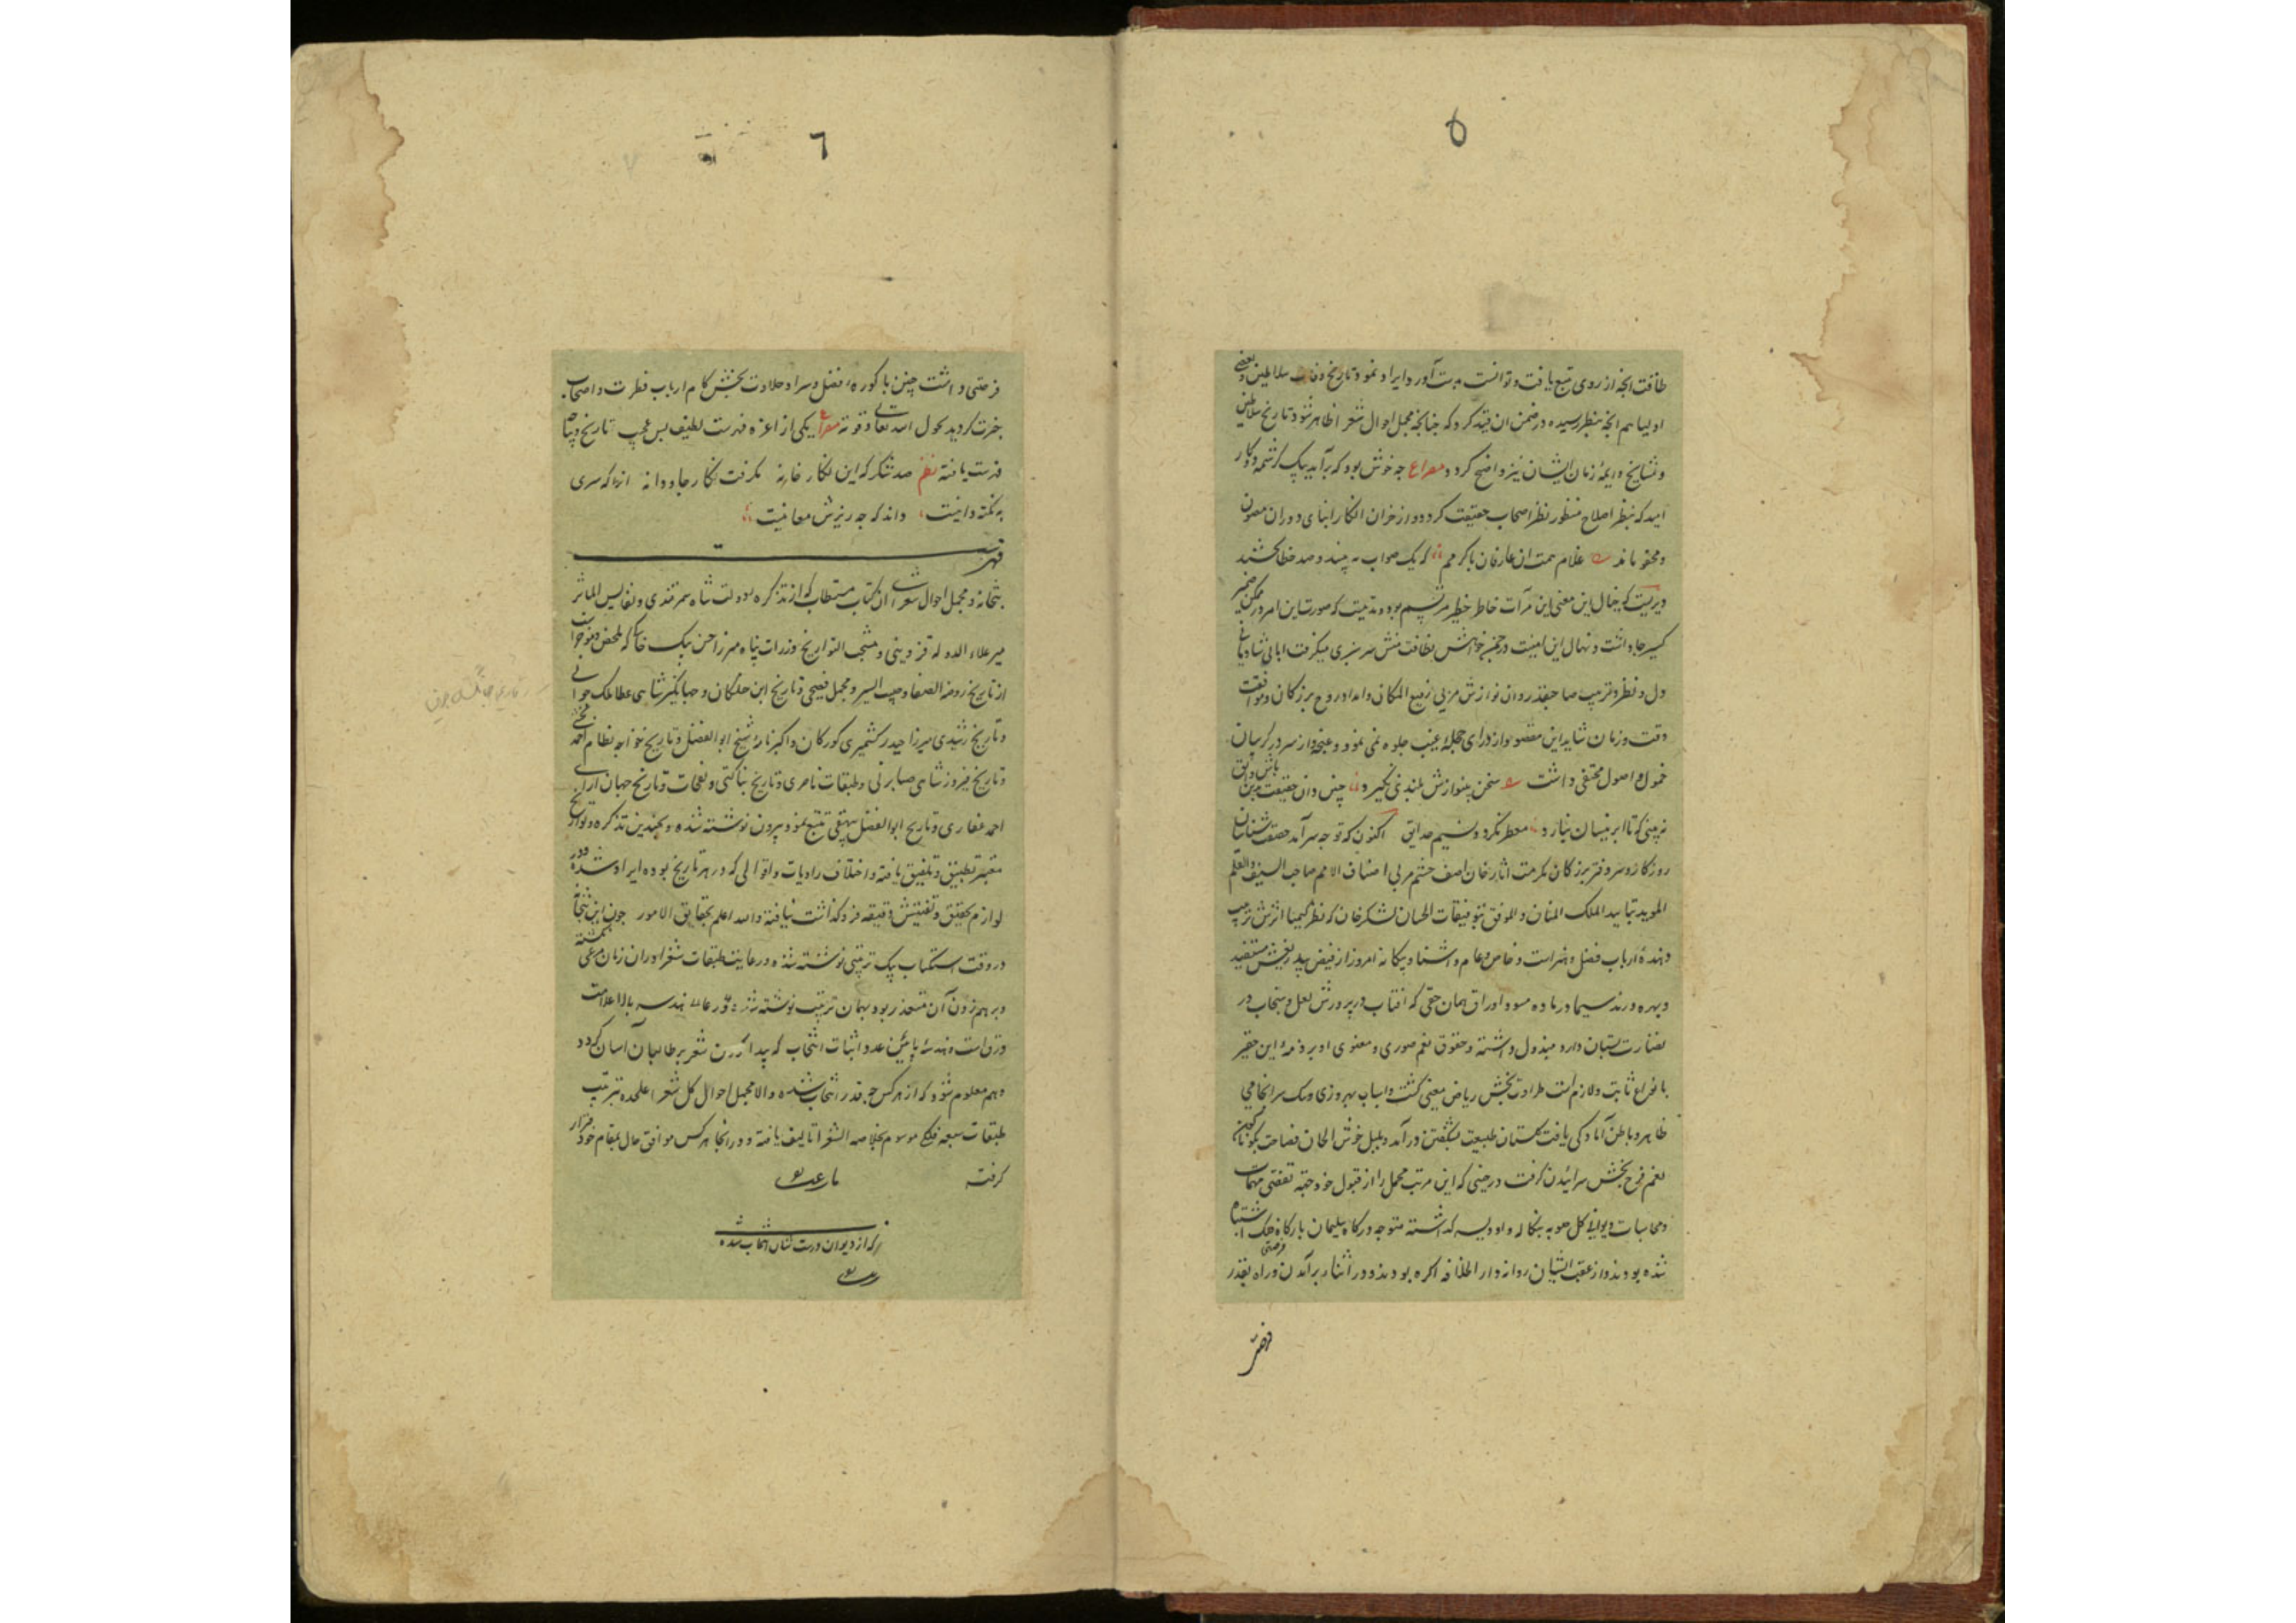 ۵
طاقت انچه از روی تتبع یافت و توانست بدست آورد ایراد نمود و تاریخ وفات سلاطین و بعضی
اولیا هم انچه بنظر رسیده در ضمن ان قید کرد که چنانچه مجمل احوال شعرا ظاهر شود تاریخ سلاطین
و مشایخ و ایمهٔ زمان ایشان نیز واضح کردد مصراع چه خوش بود که برآید بیک کرشمه دو کار
امید که بنظر اصلاح منظور نظر اصحاب حقیقت کردد و از خزان انکار ابنای دوران مصون
و محفوظ ماند غلام همت ان عارفان باکرمم که یک صواب به بینند و صد خطا بخشند
دیریست که خیال این معنی این مرآت خاطر خطیر مرتسم بود و مدتیست که صورت این امر در مکمن ضمیر
جا داشت و نهال این امنیت در چمن خواهش نظافت منش سرسبزی میکرفت
دل و نظر و ترتیب صاحبقدردان نوازش مربی رفیع المکانی و امداد روح بزرکان و موافقت
وقت و زمان شاید این مقصود از ورای حجلهٔ غیب جلوه نمی نمود و غنچه وار سر در کریبان
خمول و اصول مختفی داشت سخن بی نوازش بلندی نکیرد
نه بینی که تا ابر نیسان نبارد معطر نکردد نسیم حدایق اکنون که توجه سرآمد حقیقت شناسان
روزکار و سردفتر بزرکان مکرمت آثار خان اصف حشم مربی اصناف الامم صاحب السیف والقلم
الموید بتایید الملک المنان و الموفق بتوفیقات الحنان لشکرخان که نظر کیمیا اثرش تربیت
دهندهٔ ارباب فضل و هنر است و خاص و عام و اشنا و بیکانه امروز از فیض بیدریغش مستفید
و بهره ورند سیما در ماده مسود اوراق همان حقی که افتاب در پرورش لعل و سحاب در
نضارت بستان دارد مبذول داشته و حقوق نعم صوری و معنوی او بر ذمهٔ این حقیر
بانواع ثابت و لازم است طراوت بخش ریاض معنی کشت و اسباب بهروزی
ظاهر و باطن آمادکی یافت کلستان طبیعت بشکفتن درآمد و بلبل خوش الحان فصاحت
نغم فرح بخش سرائیدن کرفت در حینی که این مرتب مجمل را از قبول خود جهة مهمات
و محاسبات دیوانی کل صوبه بنکاله و اودیسه کذاشته متوجه درکاه سلیمان بارکاه
شده بودند و از عقب ایشان روانه دار الخلافه اکره بودند و در اثناء برآمدن و راه بقدر فرصتی
۶
فرصتی داشت چنین باکوره فضل و سرا و حلاوت بخش کام ارباب فطرت و اصحاب
خرت کردید بحول الله تعالی و قوته مصراع یکی از اعزه فهرست لطیف بس عجب تاریخ
فهرست یافته نظم صد شکر که این نکار خانه بکرفت نکار جاودانه انرا که سری
به نکته دانیست داند که چه ریزش معانیست
فهرست
بتخانه و مجمل احوال شعرای ان کتاب مستطاب که از تذکره دولت شاه سمرقندی و نفایس الماثر
میر علاء الدوله قزوینی و منتخب التواریخ وزرات پناه میرزا حسن بیک خاکی که ملخص و منتخب
از تاریخ روضه الصفا و حبیب السیر و مجمل فصیحی و تاریخ ابن خلکان و جهانکیر شاهی عطا ملک جوینی
و تاریخ رشیدی میرزا حیدر کشمیری کورکان و اکبرنامهٔ شیخ ابو الفضل و تاریخ خواجه نظام احمد بخشی
و تاریخ فیروز شاهی ضیا برنی و طبقات ناصری و تاریخ بناکتی و نفحات و تاریخ جهان ارای
احمد غفاری و تاریخ ابو الفضل بیهقی تتبع نموده بیرون نوشته شده و بچندین تذکره و تواریخ
معتبر تطبیق و تلفیق یافته و اختلاف روایات و اقوالی که در هر تاریخ بوده ایراد شده و در
لوازم تحقیق و تفتیش دقیقه فرو کذاشت نیافته والله اعلم بحقایق الامور چون این بتخانه
در وقت استکتاب بیک ترتیبی نوشته شده و رعایت طبقات شعرا و زمان مرعی نکشته
و برهم زدن آن متعذر بود بهمان ترتیب نوشته شد هندسه بالا علامت
ورق است و هندسهٔ پائین عدد ابیات انتخاب که پیدا کردن شعر بر طالبان آسان کردد
و هم معلوم شود که از هر کس چه قدر انتخاب شده والا مجمل احوال کل شعرا علحده بترتیب
طبقات سبعه فلکی موسوم بخلاصه الشعرا تالیف یافته و در انجا هر کس موافق حال بمقام خود قرار
کرفته
که از دیوان درست شان انتخاب شده